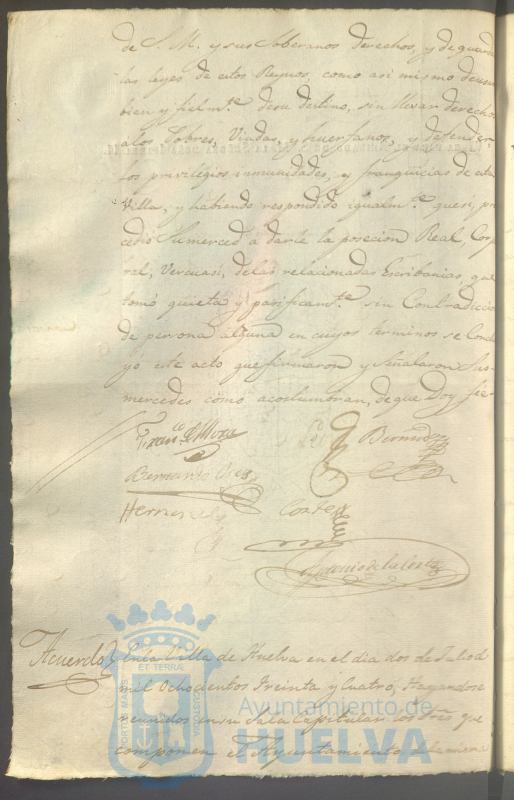 de S. M. y sus Soberanos derechos, y de guardar
las leyes de estos Reynos, como asi mismo de usar
bien y fielm.te de su destino, sin llevar derechos
á los Pobres, Viudas, y huerfanos, y defender
los privilegios inmunidades, y franquicias de esta
Villa, y habiendo respondido igualm.te que si, pro
cedió su merced á darle la posecion Real, Corpo
ral, Vel cuasi, de las relacionadas Escribanias, que
tomó quieta y pasificam.te sin Contradiccion
de persona alguna en cuyos terminos se Conclu
yó este acto que firmaron y Señalaron Sus
mercedes como acostumbran, de que Doy fee
Bernardo
Cortes
Antonio de la Corte
Acuerdo En la Villa de Huelva en el dia dos de Julio de
mil Ochocientos treinta y Cuatro, Hayandose
reunidos en su Sala Capitular los Sres que
componen el Ayuntamiento de la misma
PORTUS MARIS
ET TERRÆ
CUSTODIA
Ayuntamiento de
HUELVA